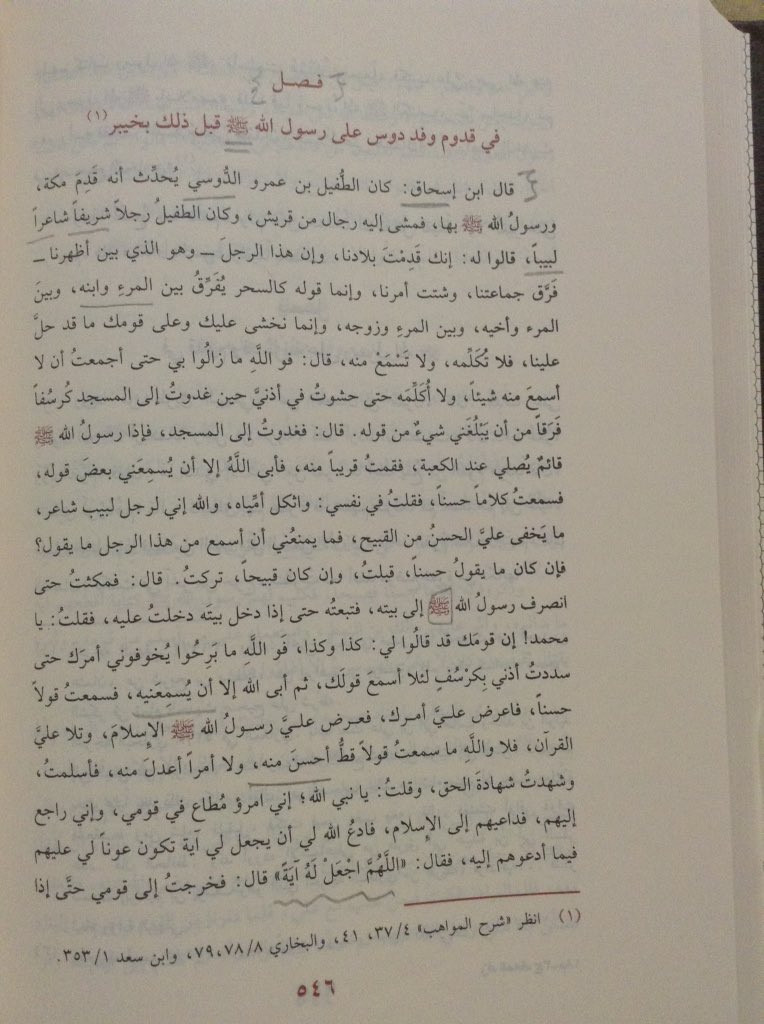 فـصـل
في قدوم وفد دوس على رسول الله ﷺ قبل ذلك بخيبر(١)
قال ابن إسحاق: كان الطُّفيل بن عمرو الدُّوسي يُحدِّث أنه قَدِمَ مكة،
ورسولُ الله ﷺ بها، فمشى إليه رجال من قريش، وكان الطفيلُ رجلاً شريفاً شاعراً
لبيباً، قالوا له: إنك قَدِمْتَ بلادنا، وإن هذا الرجلَ ــ وهو الذي بين أظهرنا ــ
فَرَّق جماعتنا، وشتت أمرنا، وإنما قوله كالسحر يُفَرِّقُ بين المرءِ وابنه، وبينَ
المرء وأخيه، وبين المرءِ وزوجه، وإنما نخشى عليك وعلى قومك ما قد حلَّ
علينا، فلا تُكَلِّمه، ولا تَسْمَعْ منه، قال: فو اللَّهِ ما زالُوا بي حتى أجمعتُ أن لا
أسمعَ منه شيئاً، ولا أُكَلِّمَه حتى حشوتُ في أذنيَّ حين غدوتُ إلى المسجد كُرسُفاً
فَرَقاً من أن يَبْلُغَني شيءٌ من قوله. قال: فغدوتُ إلى المسجد، فإذا رسولُ الله ﷺ
قائمٌ يُصلي عند الكعبة، فقمتُ قريباً منه، فأبى اللَّهُ إلا أن يُسمِعَني بعضَ قوله،
فسمعتُ كلاماً حسناً، فقلتُ في نفسي: واثكل أمِّياه، والله إني لرجل لبيب شاعر،
ما يَخفى عليَّ الحسنُ من القبيح، فما يمنعُني أن أسمع من هذا الرجل ما يقول؟
فإن كان ما يقولُ حسناً، قبلتُ، وإن كان قبيحاً، تركتُ. قال: فمكثتُ حتى
انصرف رسولُ الله ﷺ إلى بيته، فتبعتُه حتى إذا دخل بيتَه دخلتُ عليه، فقلتُ: يا
محمد! إن قومَك قد قالُوا لي: كذا وكذا، فَو اللَّهِ ما بَرِحُوا يُخوفوني أمرَك حتى
سددتُ أذني بِكرْسُفٍ لئلا أسمعَ قولَك، ثم أبى الله إلا أن يُسمِعَنيه، فسمعتُ قولاً
حسناً، فاعرض علـيَّ أمـرك، فعـرض علـيَّ رسـولُ الله ﷺ الإسلامَ، وتلا عليَّ
القرآن، فلا واللَّهِ ما سمعتُ قولاً قطُّ أحسنَ منه، ولا أمراً أعدلَ منه، فأسلمتُ،
وشهدتُ شهادةَ الحق، وقلتُ: يا نبي الله؛ إني امرؤ مُطاع في قومي، وإني راجع
إليهم، فداعيهم إلى الإسلام، فادعُ الله لي أن يجعل لي آية تكون عوناً لي عليهم
فيما أدعوهم إليه، فقال: «اللَّهُمَّ اجْعَلْ لَهُ آيَةً» قال: فخرجتُ إلى قومي حتَّى إذا
(١) انظر «شرح المواهب» ٣٧/٤، ٤١، والبخاري ٧٨/٨،٧٩، وابن سعد ٣٥٣/١.
٥٤٦